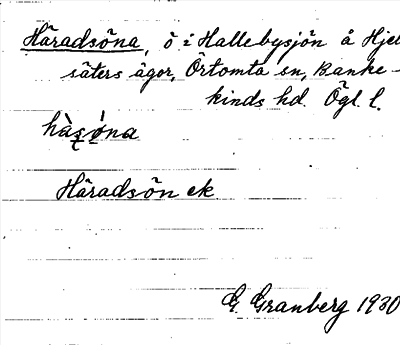 Häradsöna, ö i Hallebysjön å Hjel
säters ägor, Örtomta sn, Banke-
kinds hd. Ögl. l.
Häradsön ek
G. Granberg 1930